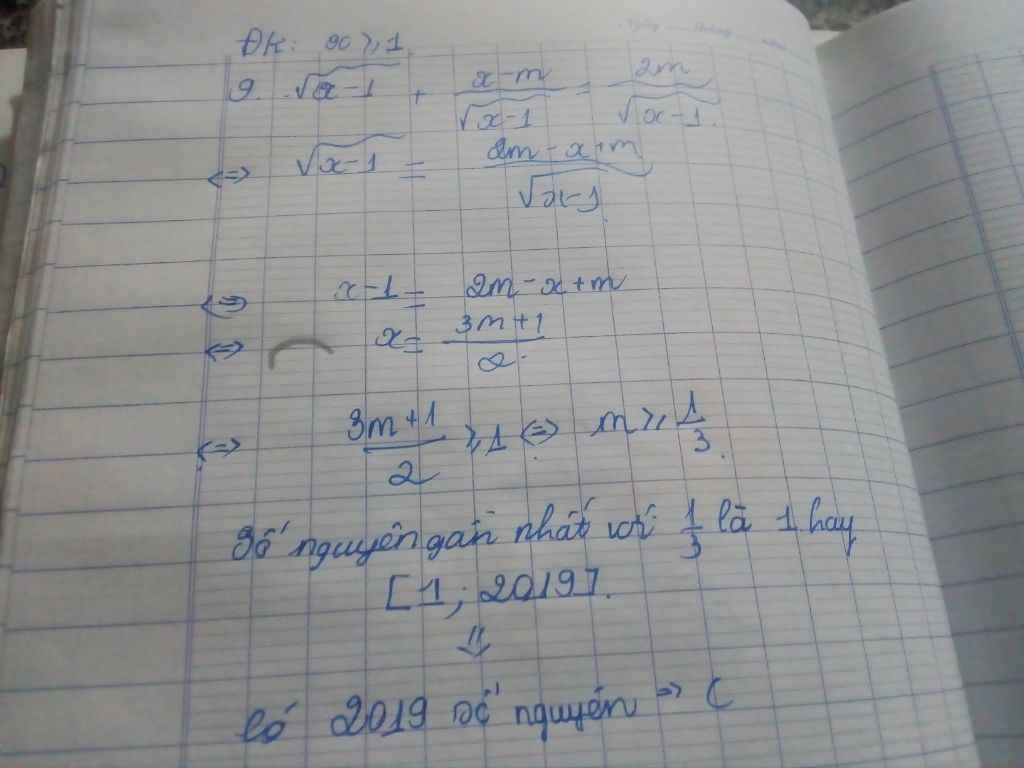 ĐK: x ⩾ 1
9. √(x-1) + (x-m)/√(x-1) = 2m/√(x-1).
<=> √(x-1) = (2m-x+m)/√(x-1)
<=> x-1 = 2m-x+m
<=> x = (3m+1)/2.
<=> (3m+1)/2 ⩾ 1 <=> m ⩾ 1/3.
Số nguyên gần nhất với 1/3 là 1 hay
[1; 2019].
⇓
Có 2019 số nguyên => C